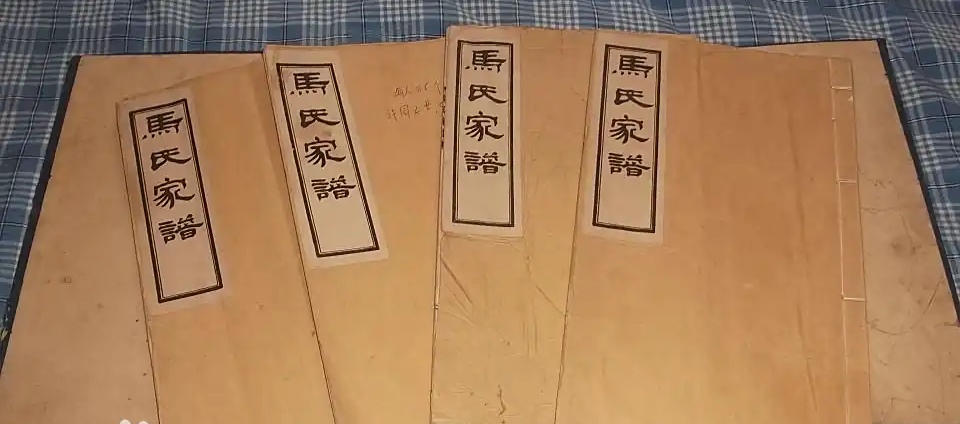 馬氏家譜
馬氏家譜
馬氏家譜
馬氏家譜